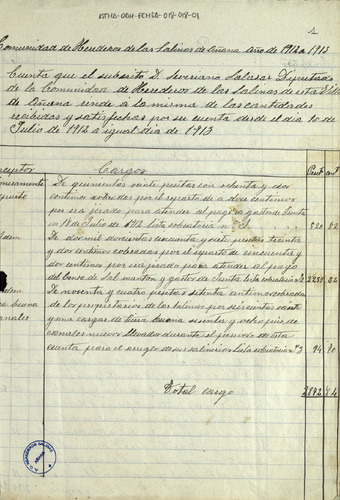 ATHA-DAH-FCHSA-018-018-01
1
Comunidad de Herederos de las Salinas de Añana año de 1912 a 1913
Cuenta que el suscrito D. Severiano Salazar Diputado
de la Comunidad de Herederos de las Salinas de esta Villa
de Añana rinde a la misma de las cantidades
recibidas y satisfechas por su cuenta desde el dia 10 de
Julio de 1912 a igual dia de 1913
Cargos
De quinientas veinte pesetas con ochenta y dos
centimos cobrados por el reparto de a doce centimos
por era para atender al pago de gastos de Junta
en 18 de Julio de 1912 lista cobratoria nº 1 520 82
Idem
De dos mil doscientas cincuenta y siete pesetas treinta
y dos centimos cobrados por el reparto de cincuenta y
dos centimos por era para atender al pago
y gastos de Junta lista cobratoria nº 2 2257 32
Idem
De noventa y cuatro pesetas setenta centimos cobradas
de los propietarios de las salinas por seiscientas veinte
y una cargas de tierra buena sesenta y ocho pies de
canales nuevos llevados durante el periodo de esta
cuenta para el arreglo de sus salinas lista cobratoria nº 3 94 70
Total cargo 2872 84